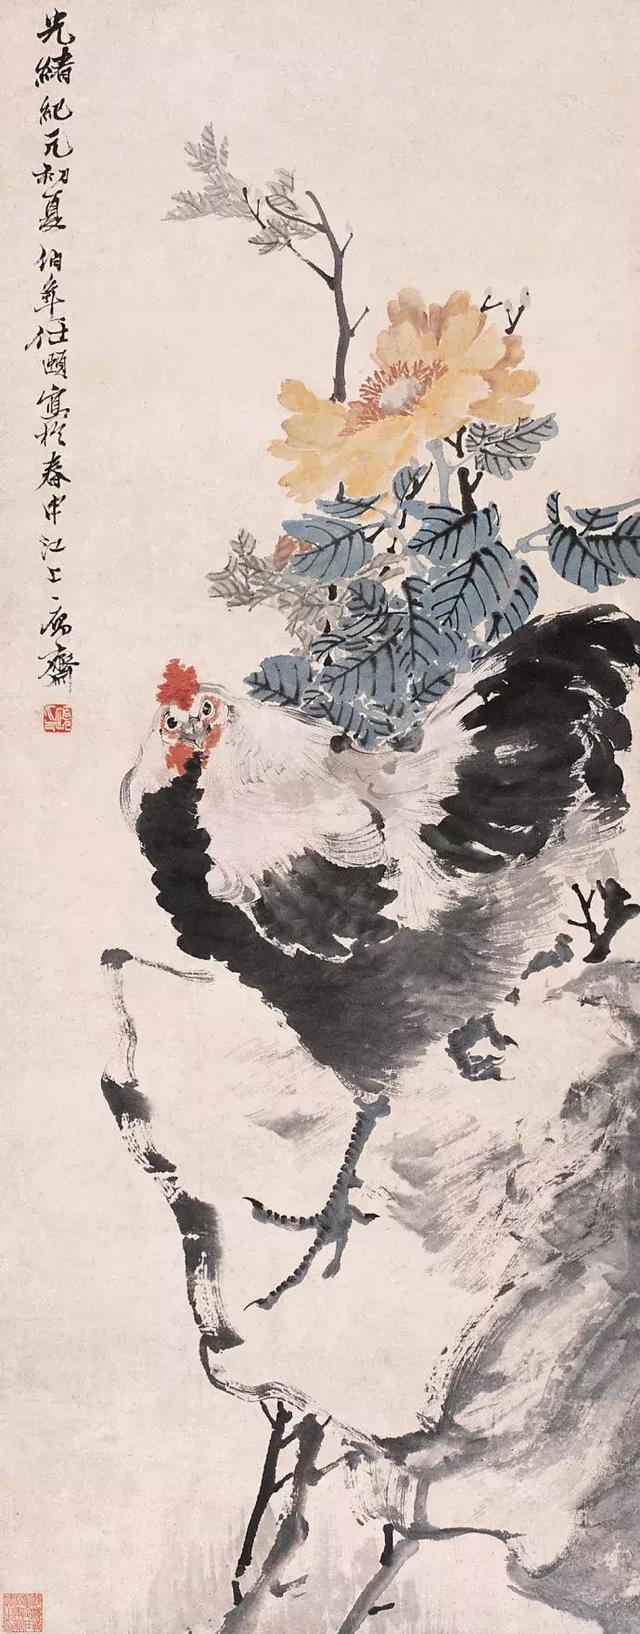 光緒紀元初夏伯年任頤寫於春申江上寓齋